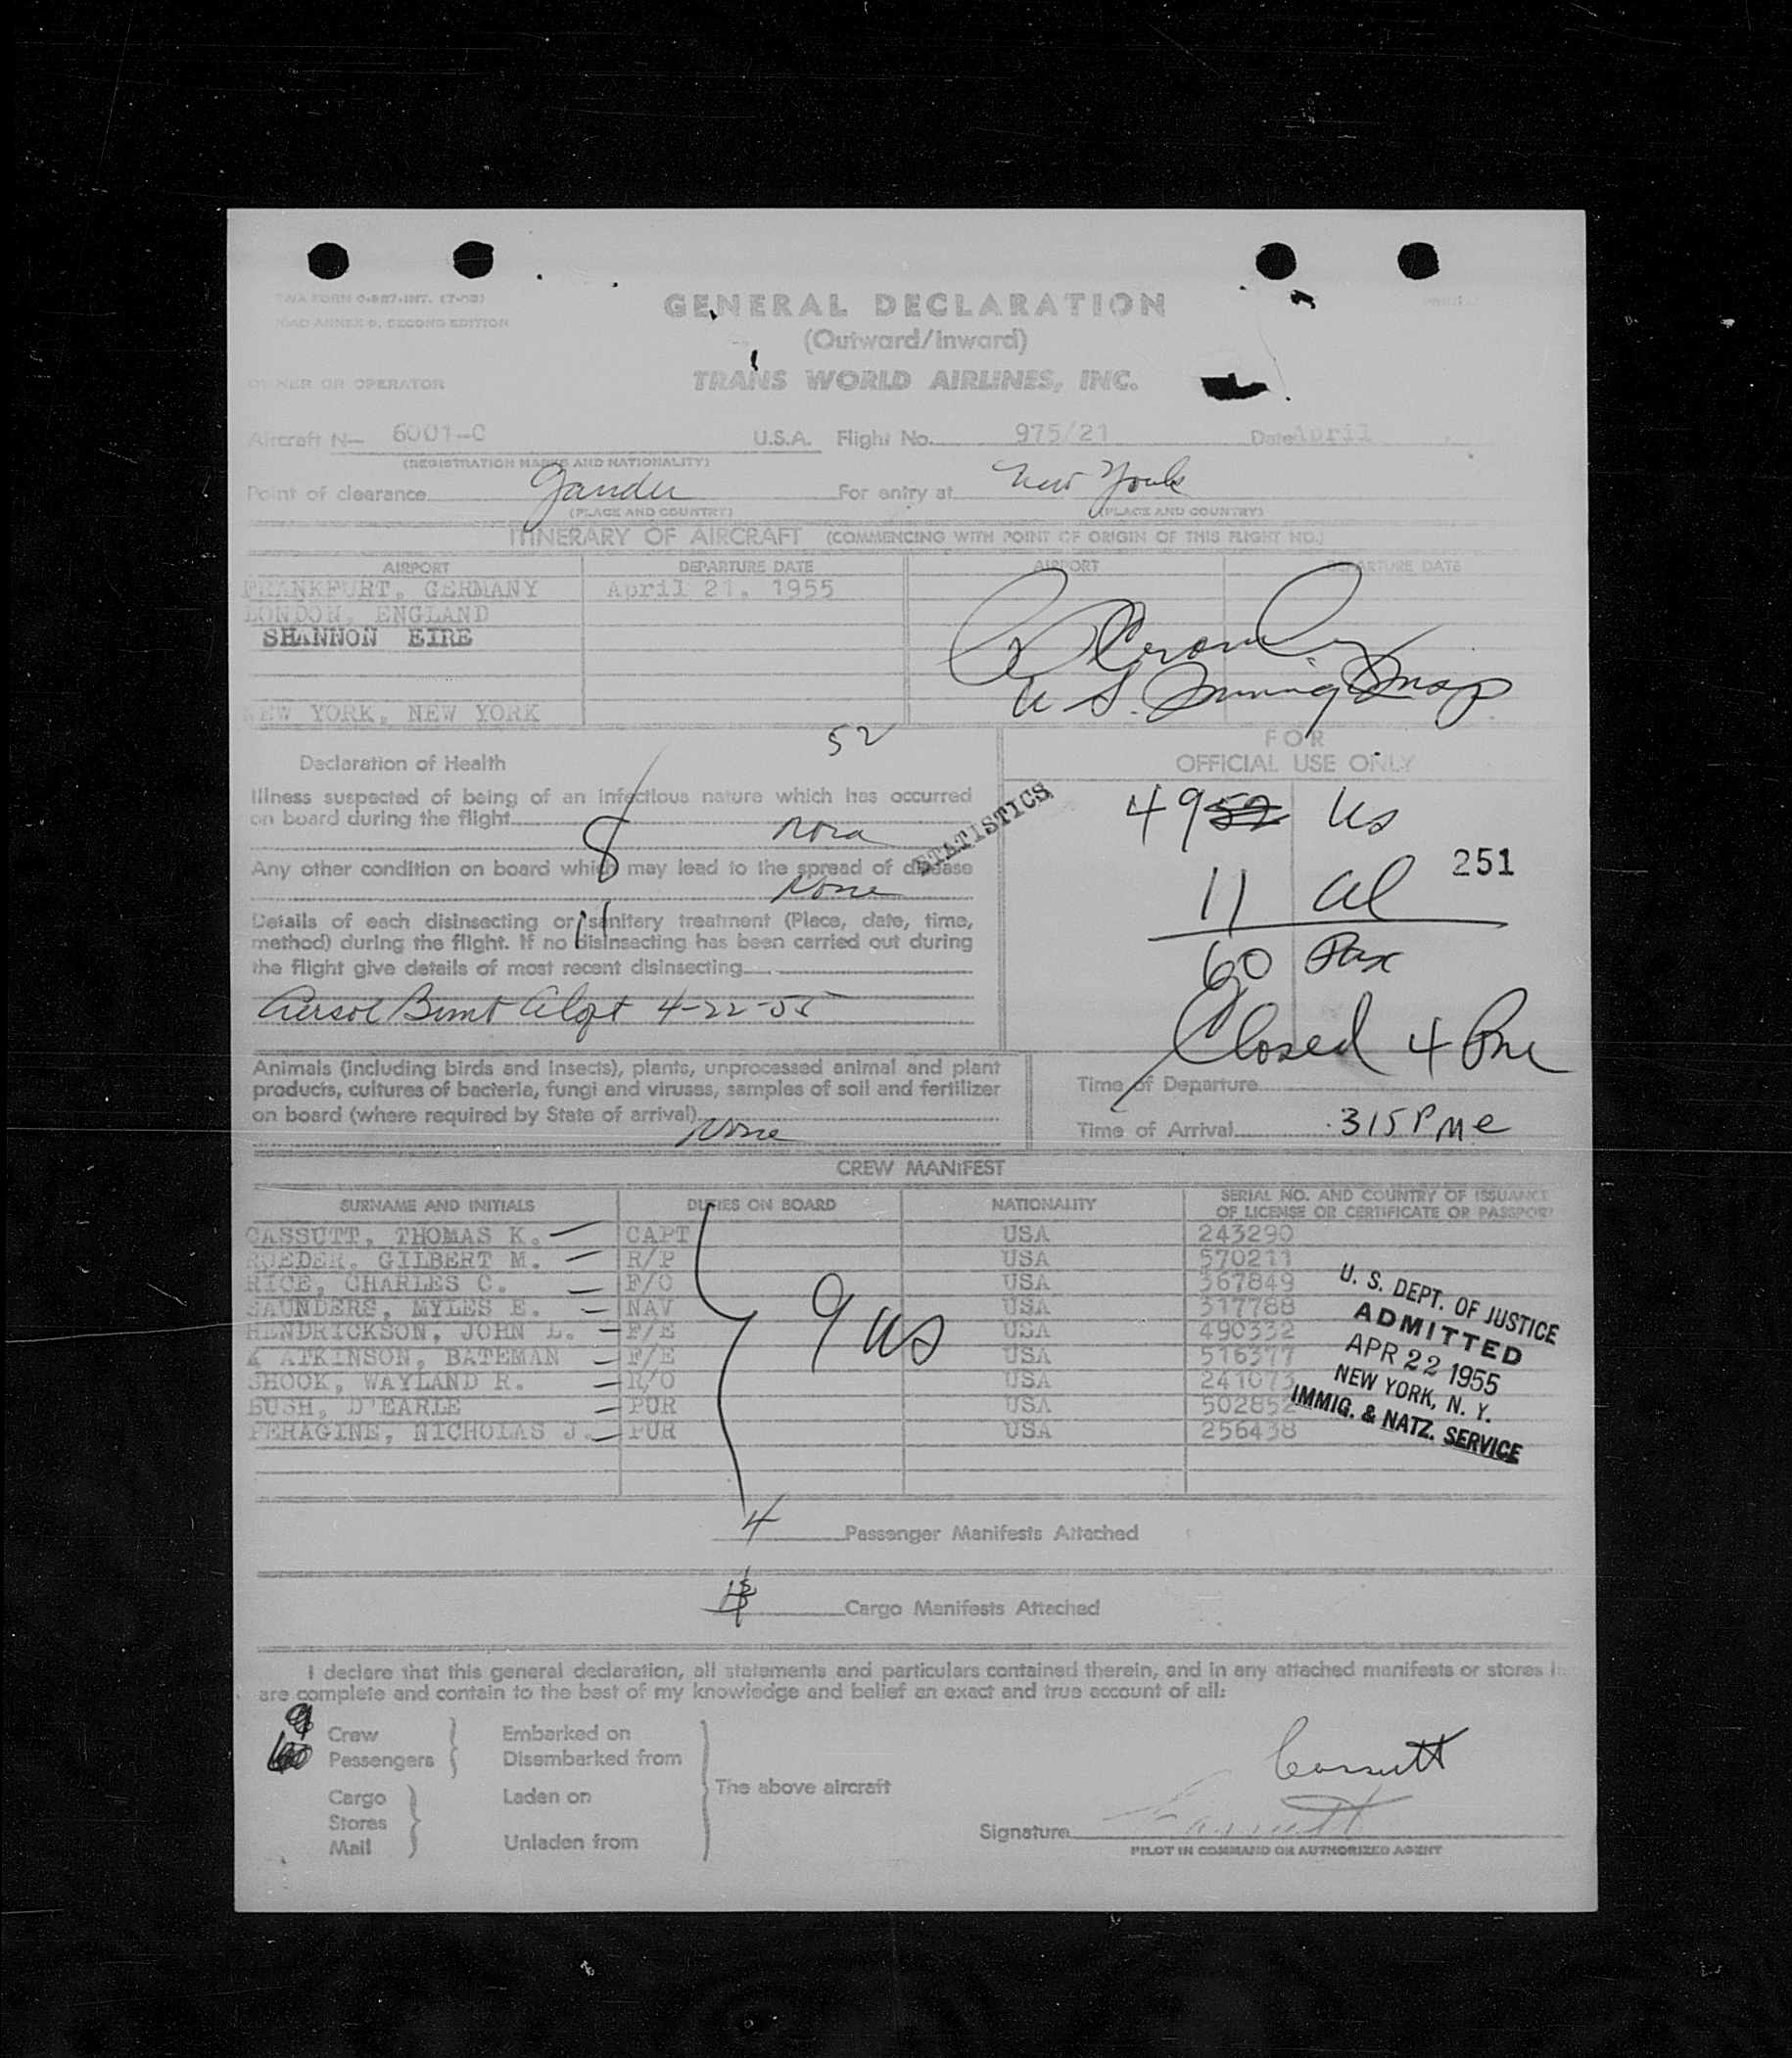 TWA FORN 0-887-INT. (7-53)
ICAO ANNEX 9, SECOND EDITION
GENERAL DECLARATION
(Outward/Inward)
OWNER OR OPERATOR
TRANS WORLD AIRLINES, INC.
Aircraft N— 6001-C U.S.A. Flight No. 975/21 Date April
(REGISTRATION MARKS AND NATIONALITY)
Point of clearance Gander For entry at New York
(PLACE AND COUNTRY) (PLACE AND COUNTRY)
ITINERARY OF AIRCRAFT (COMMENCING WITH POINT OF ORIGIN OF THIS FLIGHT NO.)
AIRPORT DEPARTURE DATE AIRPORT DEPARTURE DATE
FRANKFURT, GERMANY April 21, 1955
LONDON, ENGLAND
SHANNON EIRE
U.S. Immig Insp
NEW YORK, NEW YORK
52
FOR
OFFICIAL USE ONLY
Declaration of Health
Illness suspected of being of an infectious nature which has occurred
on board during the flight
8
STATISTICS
49 52 US
Any other condition on board which may lead to the spread of disease
None
251
11 al
Details of each disinsecting or sanitary treatment (Place, date, time,
method) during the flight. If no disinsecting has been carried out during
the flight give details of most recent disinsecting
11
60 Pax
4-22-55
Closed 4 Pm
Animals (including birds and insects), plants, unprocessed animal and plant
products, cultures of bacteria, fungi and viruses, samples of soil and fertilizer
on board (where required by State of arrival) None
Time of Departure
Time of Arrival 315 Pme
CREW MANIFEST
SURNAME AND INITIALS DUTIES ON BOARD NATIONALITY SERIAL NO. AND COUNTRY OF ISSUANCE
OF LICENSE OR CERTIFICATE OR PASSPORT
CASSUTT, THOMAS K. CAPT USA 243290
ROEDER, GILBERT M. R/P USA 570211
RICE, CHARLES C. F/O USA 367849
SAUNDERS, MYLES E. NAV USA 317788
HENDRICKSON, JOHN L. F/E USA 490332
ATKINSON, BATEMAN F/E USA 516377
SHOOK, WAYLAND R. R/O USA 241073
BUSH, D'EARLE PUR USA 502852
PERAGINE, NICHOLAS J. PUR USA 256438
9 US
U. S. DEPT. OF JUSTICE
ADMITTED
APR 22 1955
NEW YORK, N. Y.
IMMIG. & NATZ. SERVICE
4 Passenger Manifests Attached
Cargo Manifests Attached
I declare that this general declaration, all statements and particulars contained therein, and in any attached manifests or stores
are complete and contain to the best of my knowledge and belief an exact and true account of all:
9 Crew Embarked on
60 Passengers Disembarked from
Cargo Laden on
Stores
Mail Unladen from
The above aircraft
Cassutt
Signature Cassutt
PILOT IN COMMAND OR AUTHORIZED AGENT